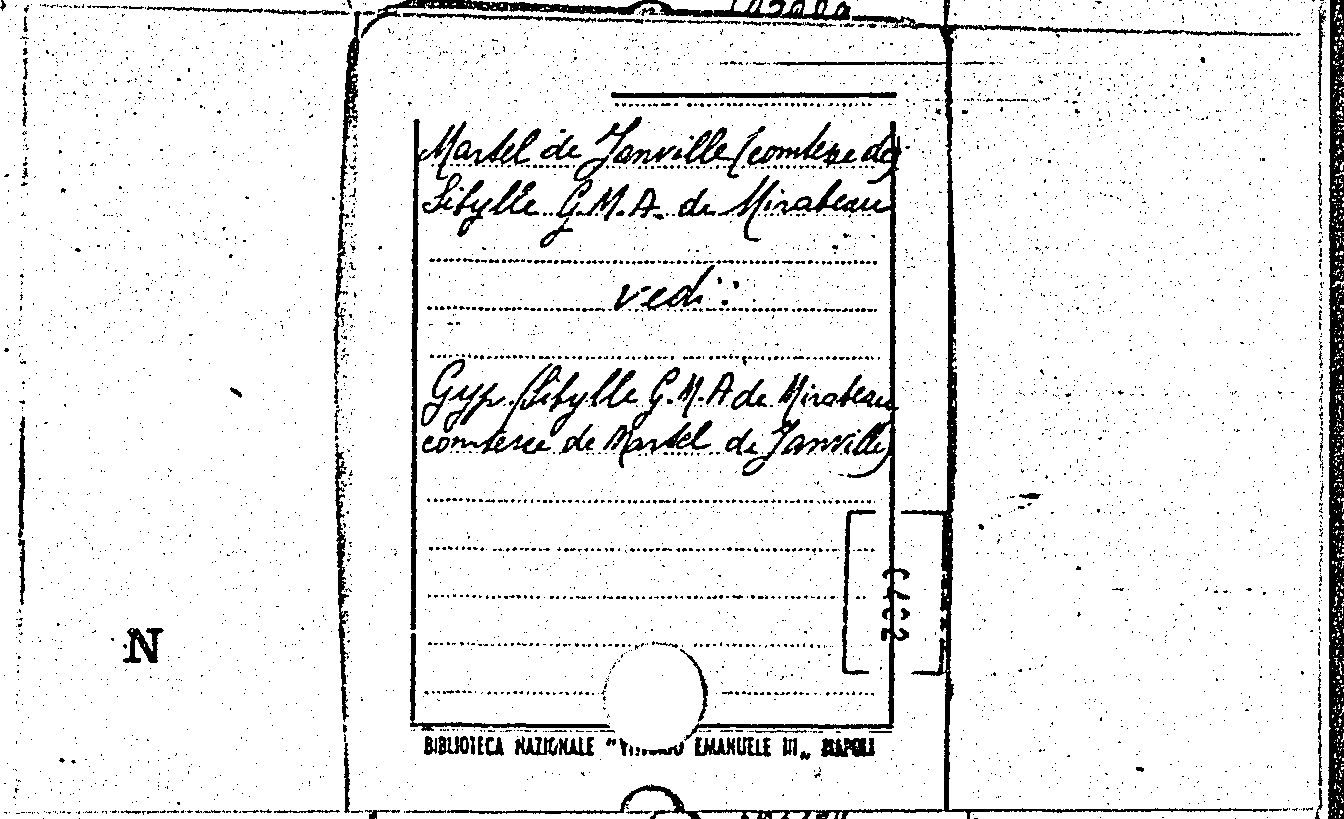 Martel de Janville (comtesse de)
Sibylle G.M.A. de Mirabeau
vedi:
Gyp (Sibylle G.M.A de Mirabeau
comtesse de Martel de Janville)
N
BIBLIOTECA NAZIONALE "VITTORIO EMANUELE III„ NAPOLI